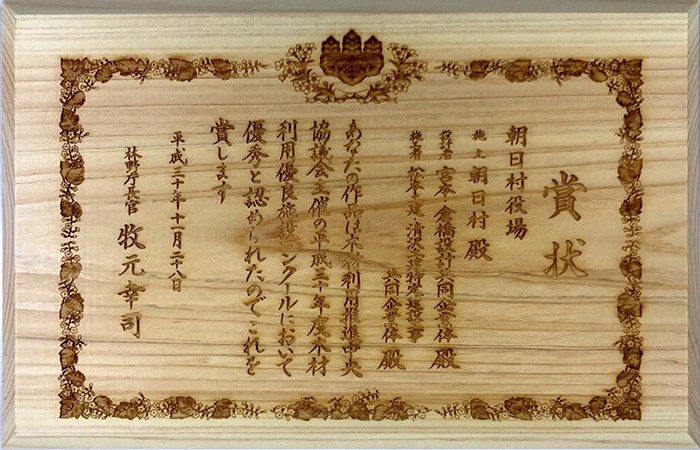 賞状
朝日村役場
施主 朝日村 殿
設計者 宮本・倉橋設計共同企業体 殿
施工者 松本土建・清沢土建特定建設工事
共同企業体 殿
あなたの作品は木材利用推進中央
協議会主催の平成三十年度木材
利用優良施設コンクールにおいて
優秀と認められたのでこれを
賞します
平成三十年十一月二十八日
林野庁長官 牧元幸司